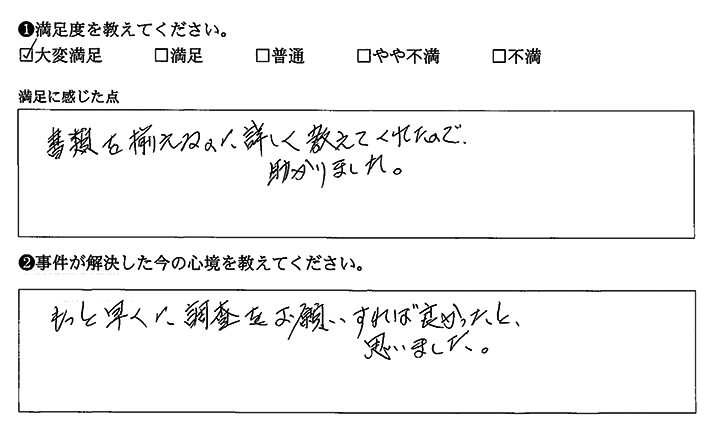 ❶満足度を教えてください。
☑大変満足 □満足 □普通 □やや不満 □不満
満足に感じた点
書類を揃えるのに詳しく教えてくれたので、
助かりました。
❷事件が解決した今の心境を教えてください。
もっと早くに調査をお願いすれば良かったと、
思いました。